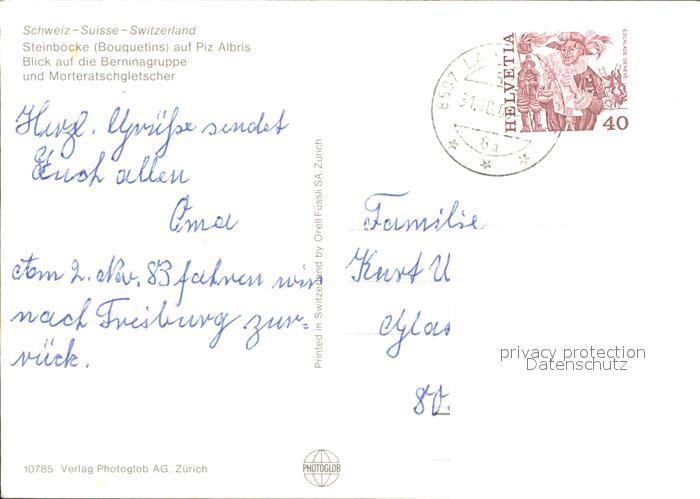 Schweiz – Suisse – Switzerland
Steinböcke (Bouquetins) auf Piz Albris
Blick auf die Berninagruppe
und Morteratschgletscher
Herzl. Grüße sendet
Euch allen
Oma
Am 2. Nov. 83 fahren wir
nach Freiburg zur=
rück.
10785 Verlag Photoglob AG, Zürich
PHOTOGLOB
Printed in Switzerland by Orell Füssli SA, Zurich
HELVETIA
ESCALADE GENÈVE
40
Familie
Kurt U
80.
privacy protection
Datenschutz